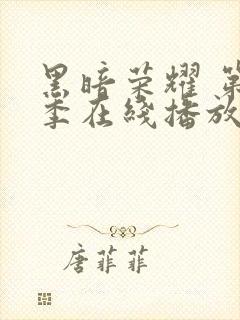 黑暗荣耀 第
季在线播放
唐菲菲